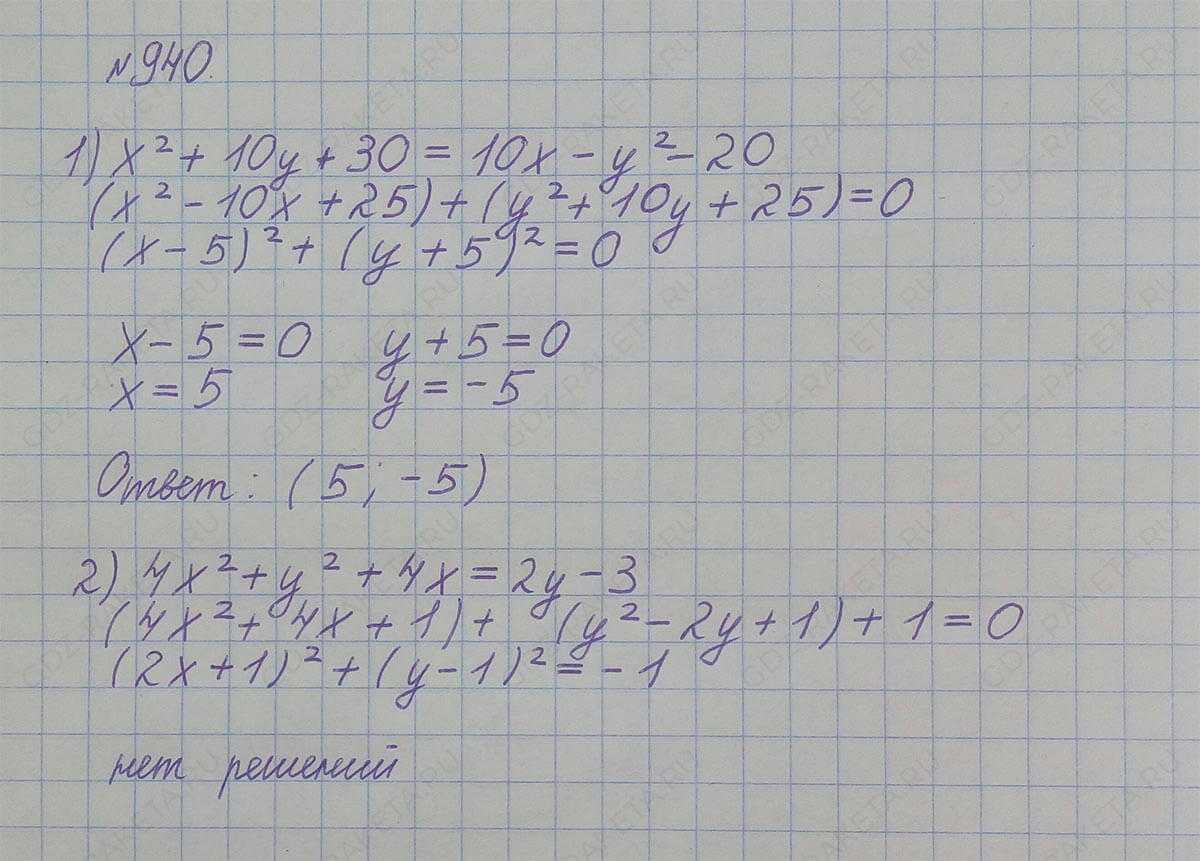 №940.
1) x² + 10y + 30 = 10x - y² - 20
(x² - 10x + 25) + (y² + 10y + 25) = 0
(x - 5)² + (y + 5)² = 0
x - 5 = 0 y + 5 = 0
x = 5 y = -5
Ответ: (5; -5)
2) 4x² + y² + 4x = 2y - 3
(4x² + 4x + 1) + (y² - 2y + 1) + 1 = 0
(2x + 1)² + (y - 1)² = -1
нет решений
GDZ-RAKETA.RU